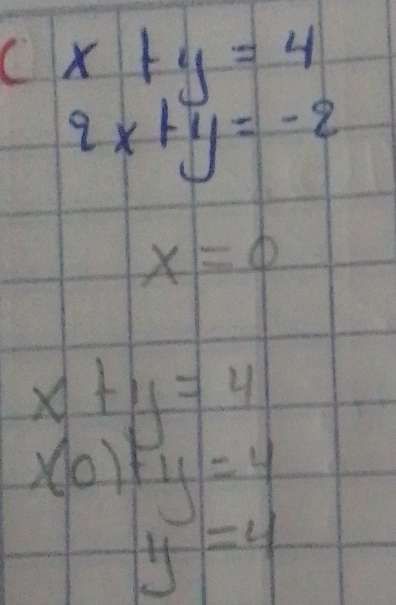 C x + y = 4
2x + y = -2
x = 0
x + y = 4
x(0) + y = 4
y = 4